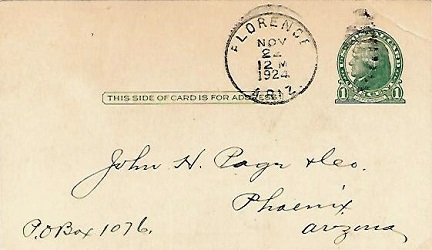 FLORENCE
NOV
22
12 M
1924
ARIZ.
THIS SIDE OF CARD IS FOR ADDRESS
1 1
John H. Page & Co.
Phoenix
P.O Box 1076. Arizona